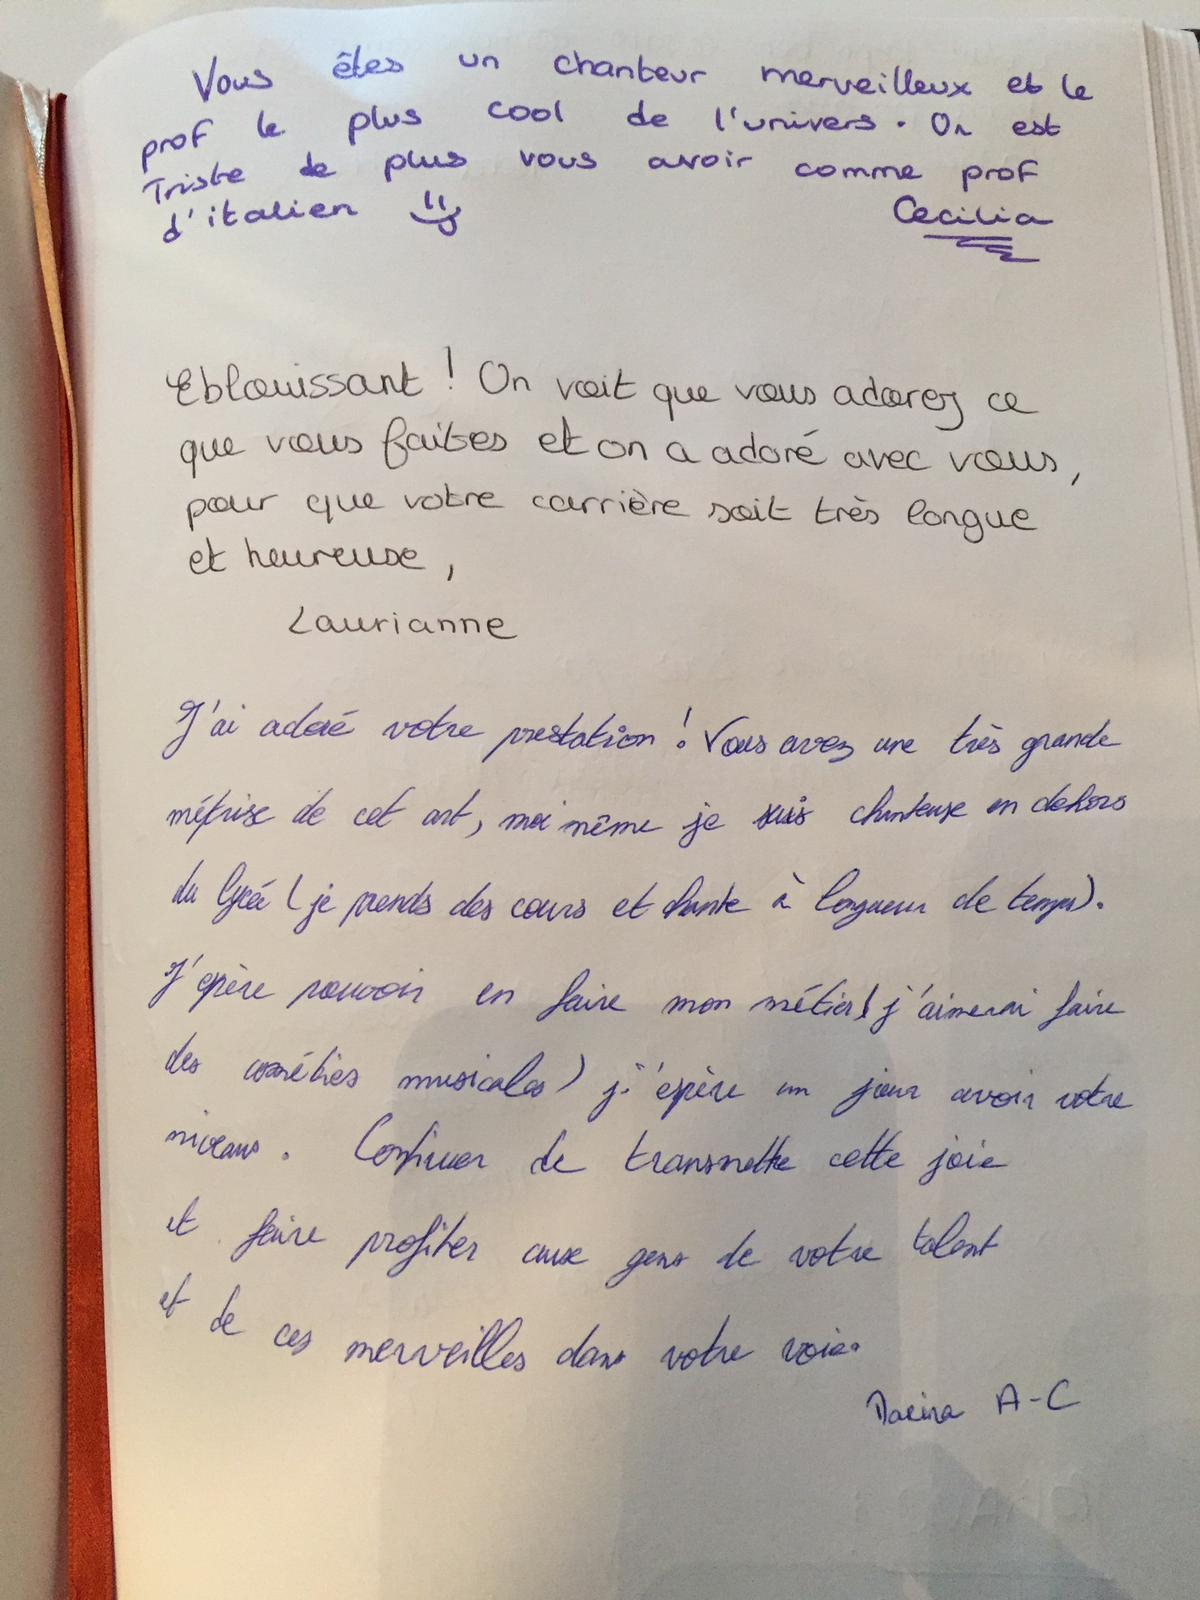 Vous êtes un chanteur merveilleux et le
prof le plus cool de l'univers. On est
Triste de plus vous avoir comme prof
d'italien
Cecilia
Eblouissant ! On voit que vous adorez ce
que vous faites et on a adoré avec vous,
pour que votre carrière soit très longue
et heureuse,
Laurianne
J'ai adoré votre prestation ! Vous avez une très grande
métrise de cet art, moi même je suis chanteuse en dehors
du lycée (je prends des cours et chante à longueur de temps).
J'epère pouvoir en faire mon métier (j'aimerai faire
des comédies musicales) j'epère un jour avoir votre
niveau. Continuer de transmettre cette joie
et faire profiter aux gens de votre talent
et de ces merveilles dans votre voix.
A-C